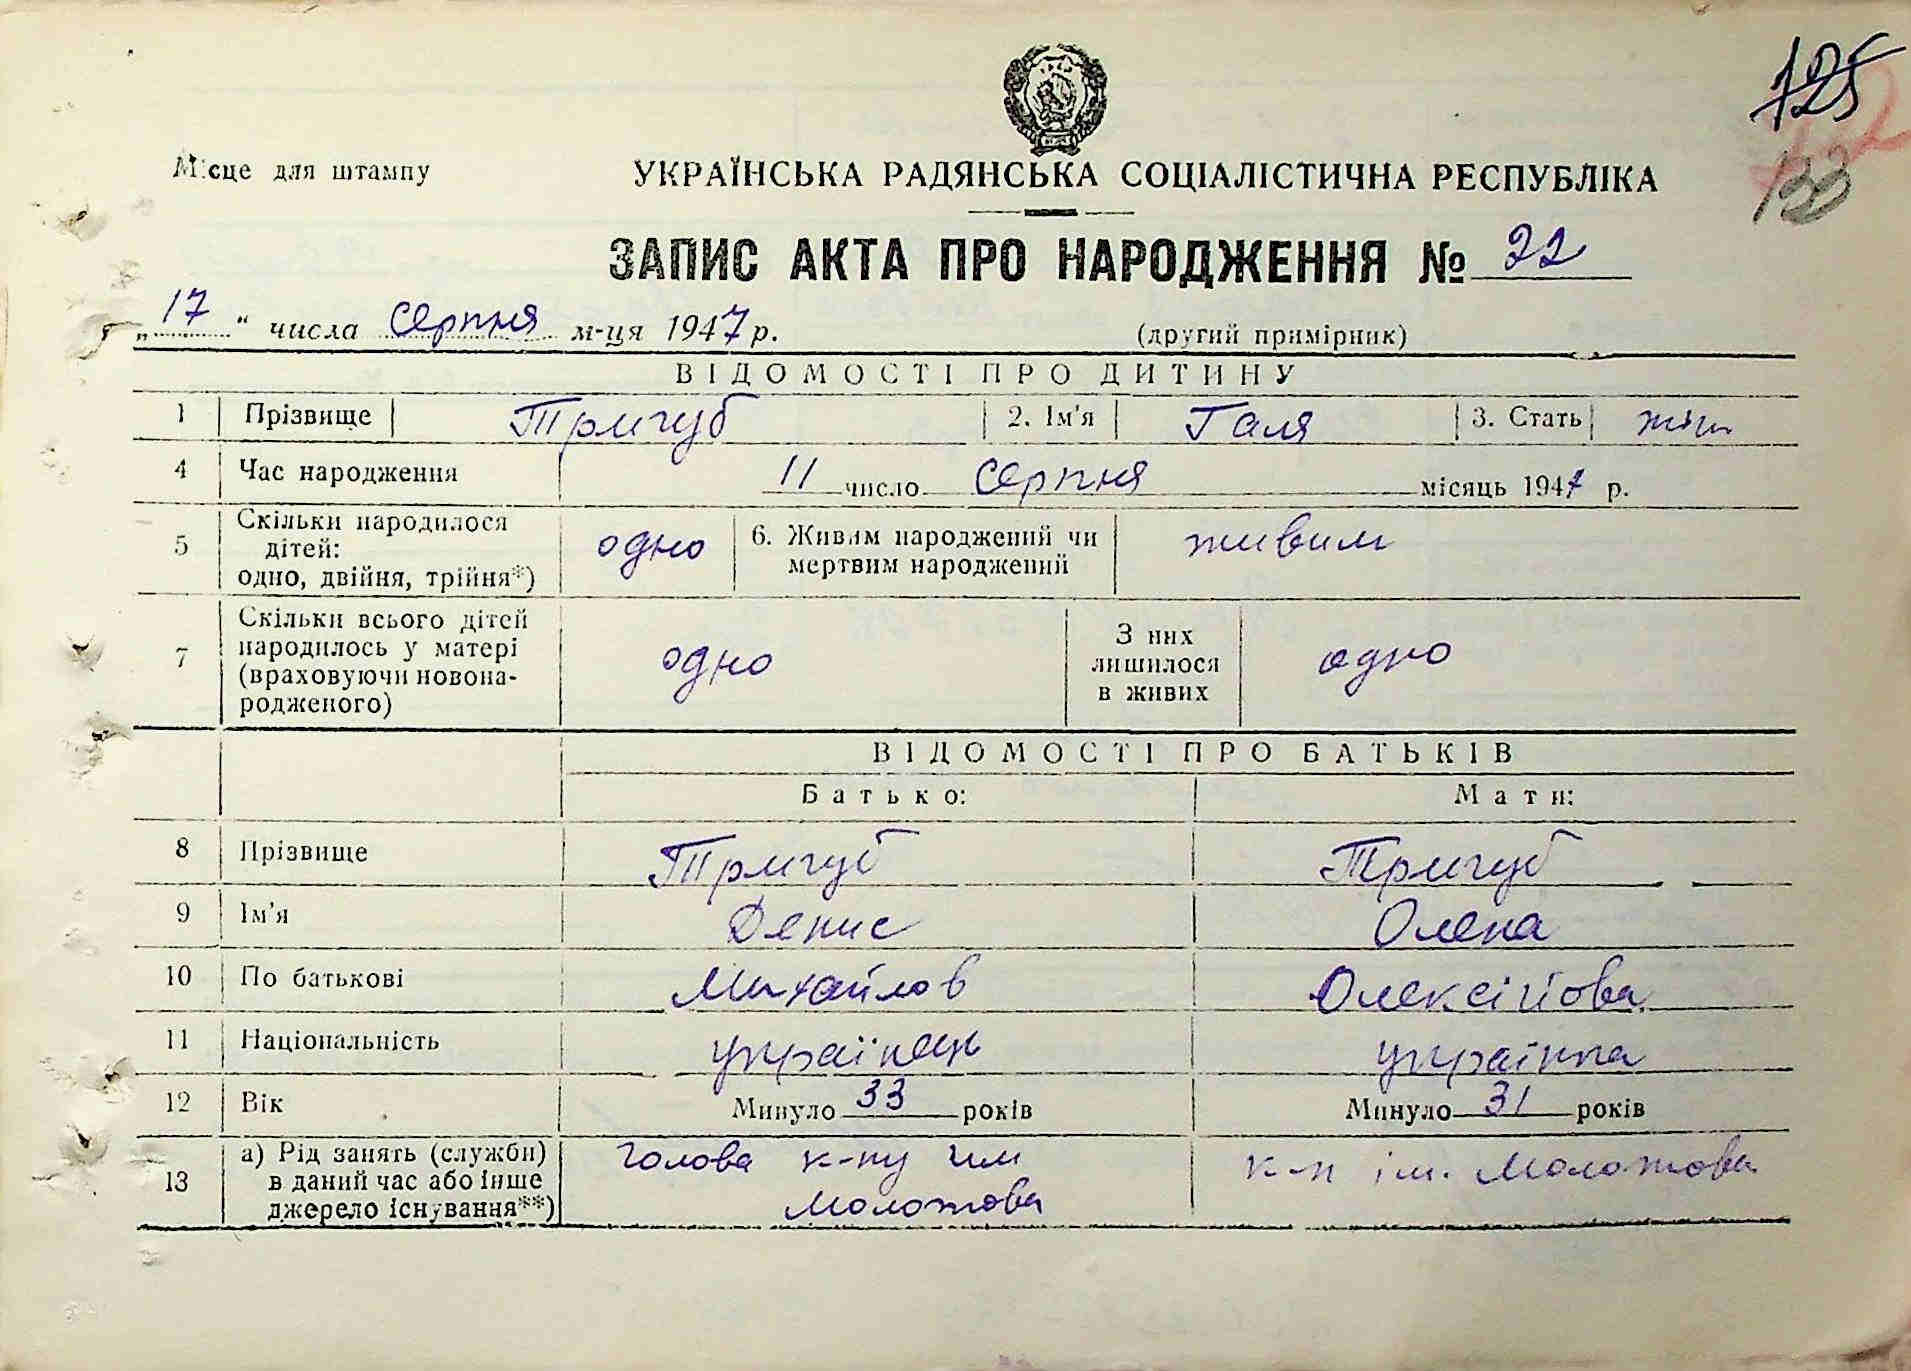 125
133
Місце для штампу
УКРАЇНСЬКА РАДЯНСЬКА СОЦІАЛІСТИЧНА РЕСПУБЛІКА
ЗАПИС АКТА ПРО НАРОДЖЕННЯ № 22
„17“ числа серпня м-ця 1947 р. (другий примірник)
ВІДОМОСТІ ПРО ДИТИНУ
1 Прізвище Тригуб 2. Ім'я Галя 3. Стать жін
4 Час народження 11 число серпня місяць 1947 р.
5 Скільки народилося дітей: одно, двійня, трійня*) одно 6. Живим народжений чи мертвим народжений живим
7 Скільки всього дітей народилось у матері (враховуючи новона-родженого) одно З них лишилося в живих одно
ВІДОМОСТІ ПРО БАТЬКІВ
Батько: Мати:
8 Прізвище Тригуб Тригуб
9 Ім'я Денис Олена
10 По батькові Михайлов Олексіїова
11 Національність українець українка
12 Вік Минуло 33 років Минуло 31 років
13 а) Рід занять (служби) в даний час або інше джерело існування**) голова к-пу им Молотова к-п ім. Молотова